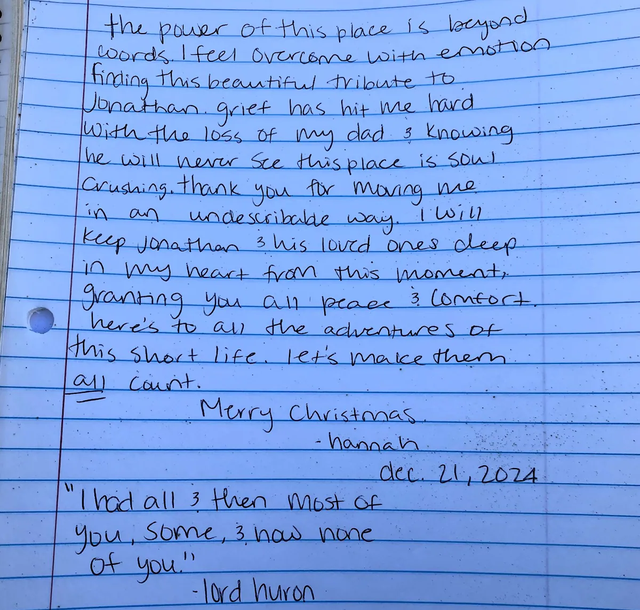 the power of this place is beyond
words. I feel overcome with emotion
finding this beautiful tribute to
Jonathan. grief has hit me hard
with the loss of my dad & knowing
he will never see this place is soul
crushing. thank you for moving me
in an undescribable way. I will
keep Jonathan & his loved ones deep
in my heart from this moment,
granting you all peace & comfort.
here's to all the adventures of
this short life. let's make them
all count.
Merry Christmas.
-hannah
dec. 21, 2024
"I had all & then most of
you, some, & now none
of you."
-lord huron